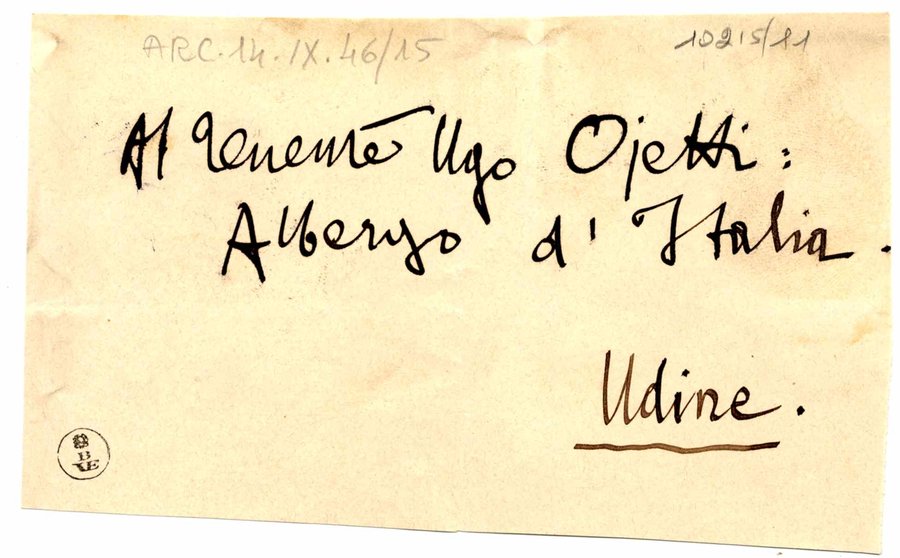 ARC.14.IX.46/15
10215/11
Al Tenente Ugo Ojetti:
Albergo d'Italia.
Udine.
B
VE